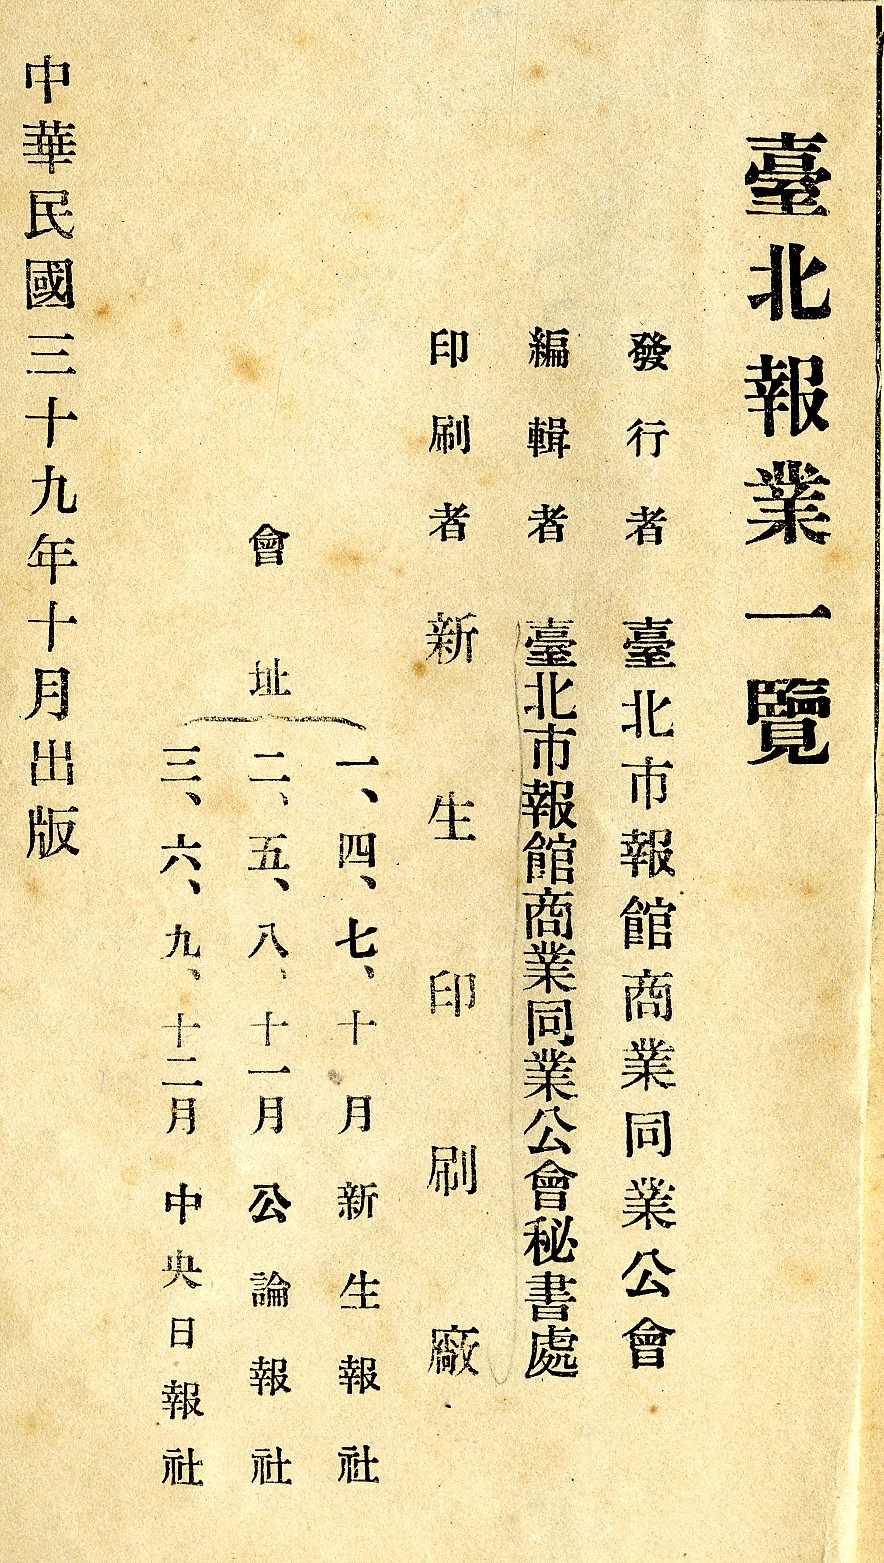 臺北報業一覽
發行者 臺北市報館商業同業公會
編輯者 臺北市報館商業同業公會秘書處
印刷者 新生印刷廠
會址
一、四、七、十月新生報社
二、五、八、十一月公論報社
三、六、九、十二月中央日報社
中華民國三十九年十月出版